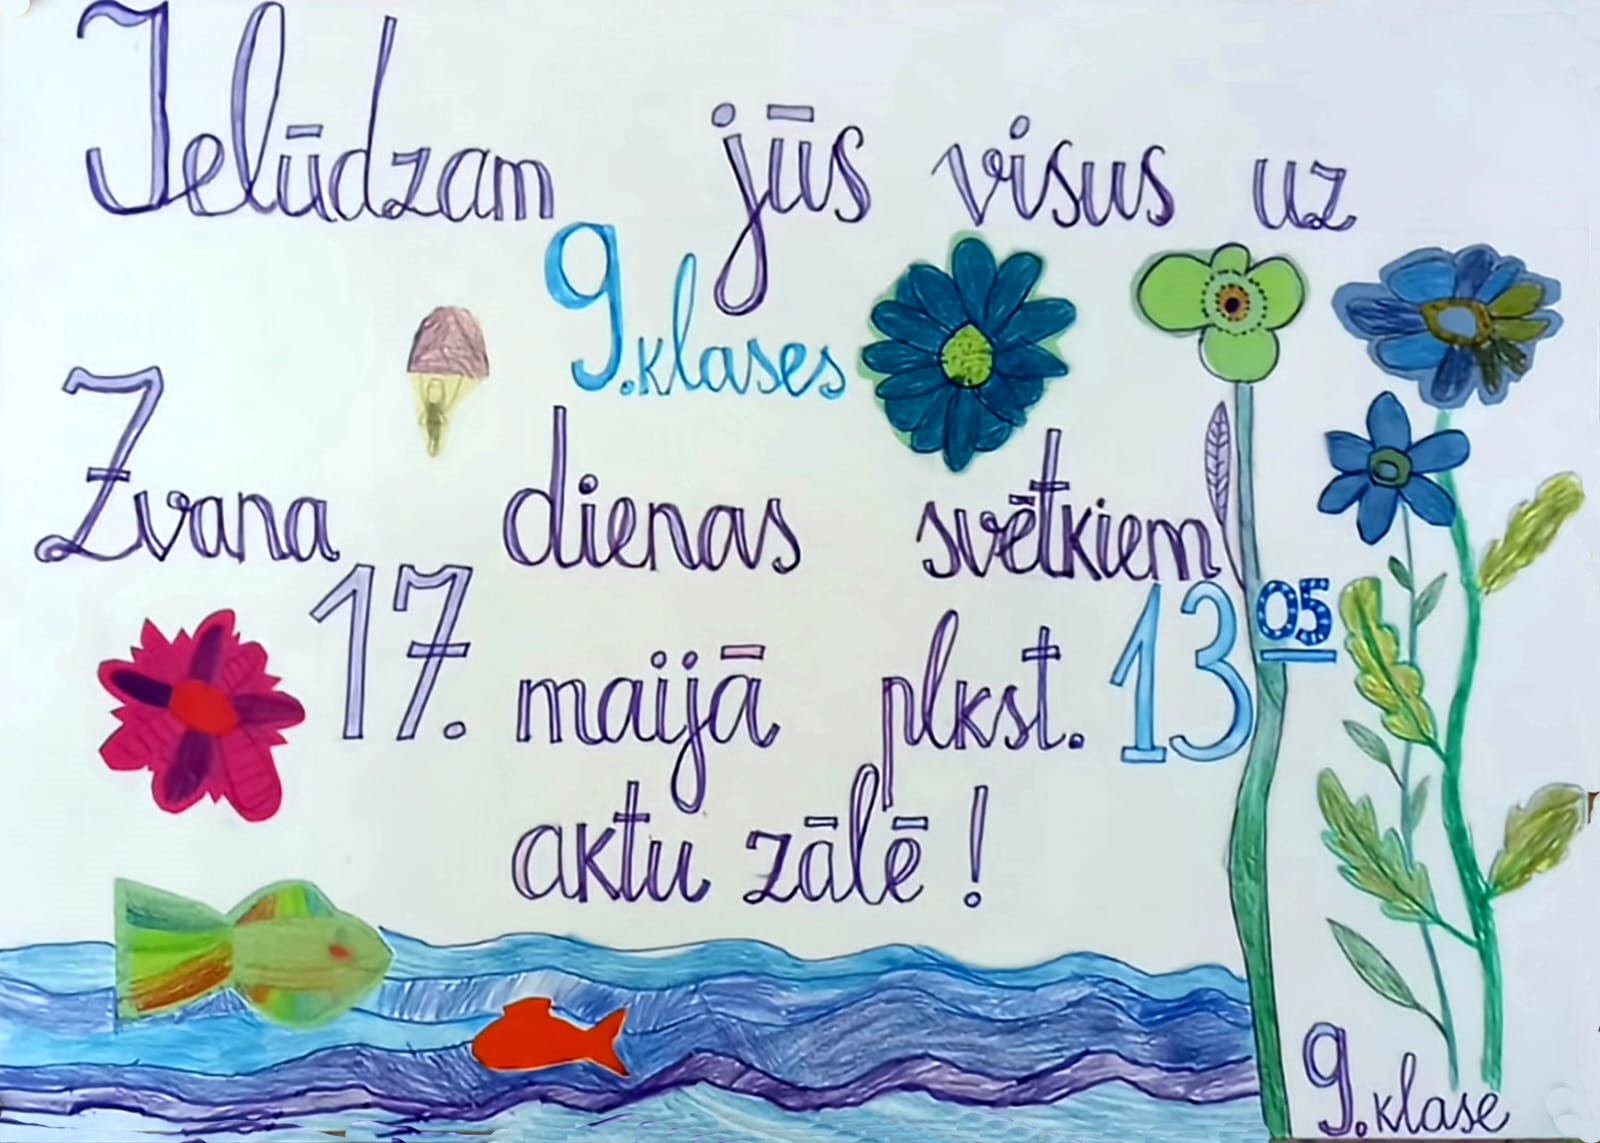 Ielūdzam jūs visus uz
9.klases
Zvana dienas svētkiem
17. maijā plkst. 13 05
aktu zālē !
9.klase